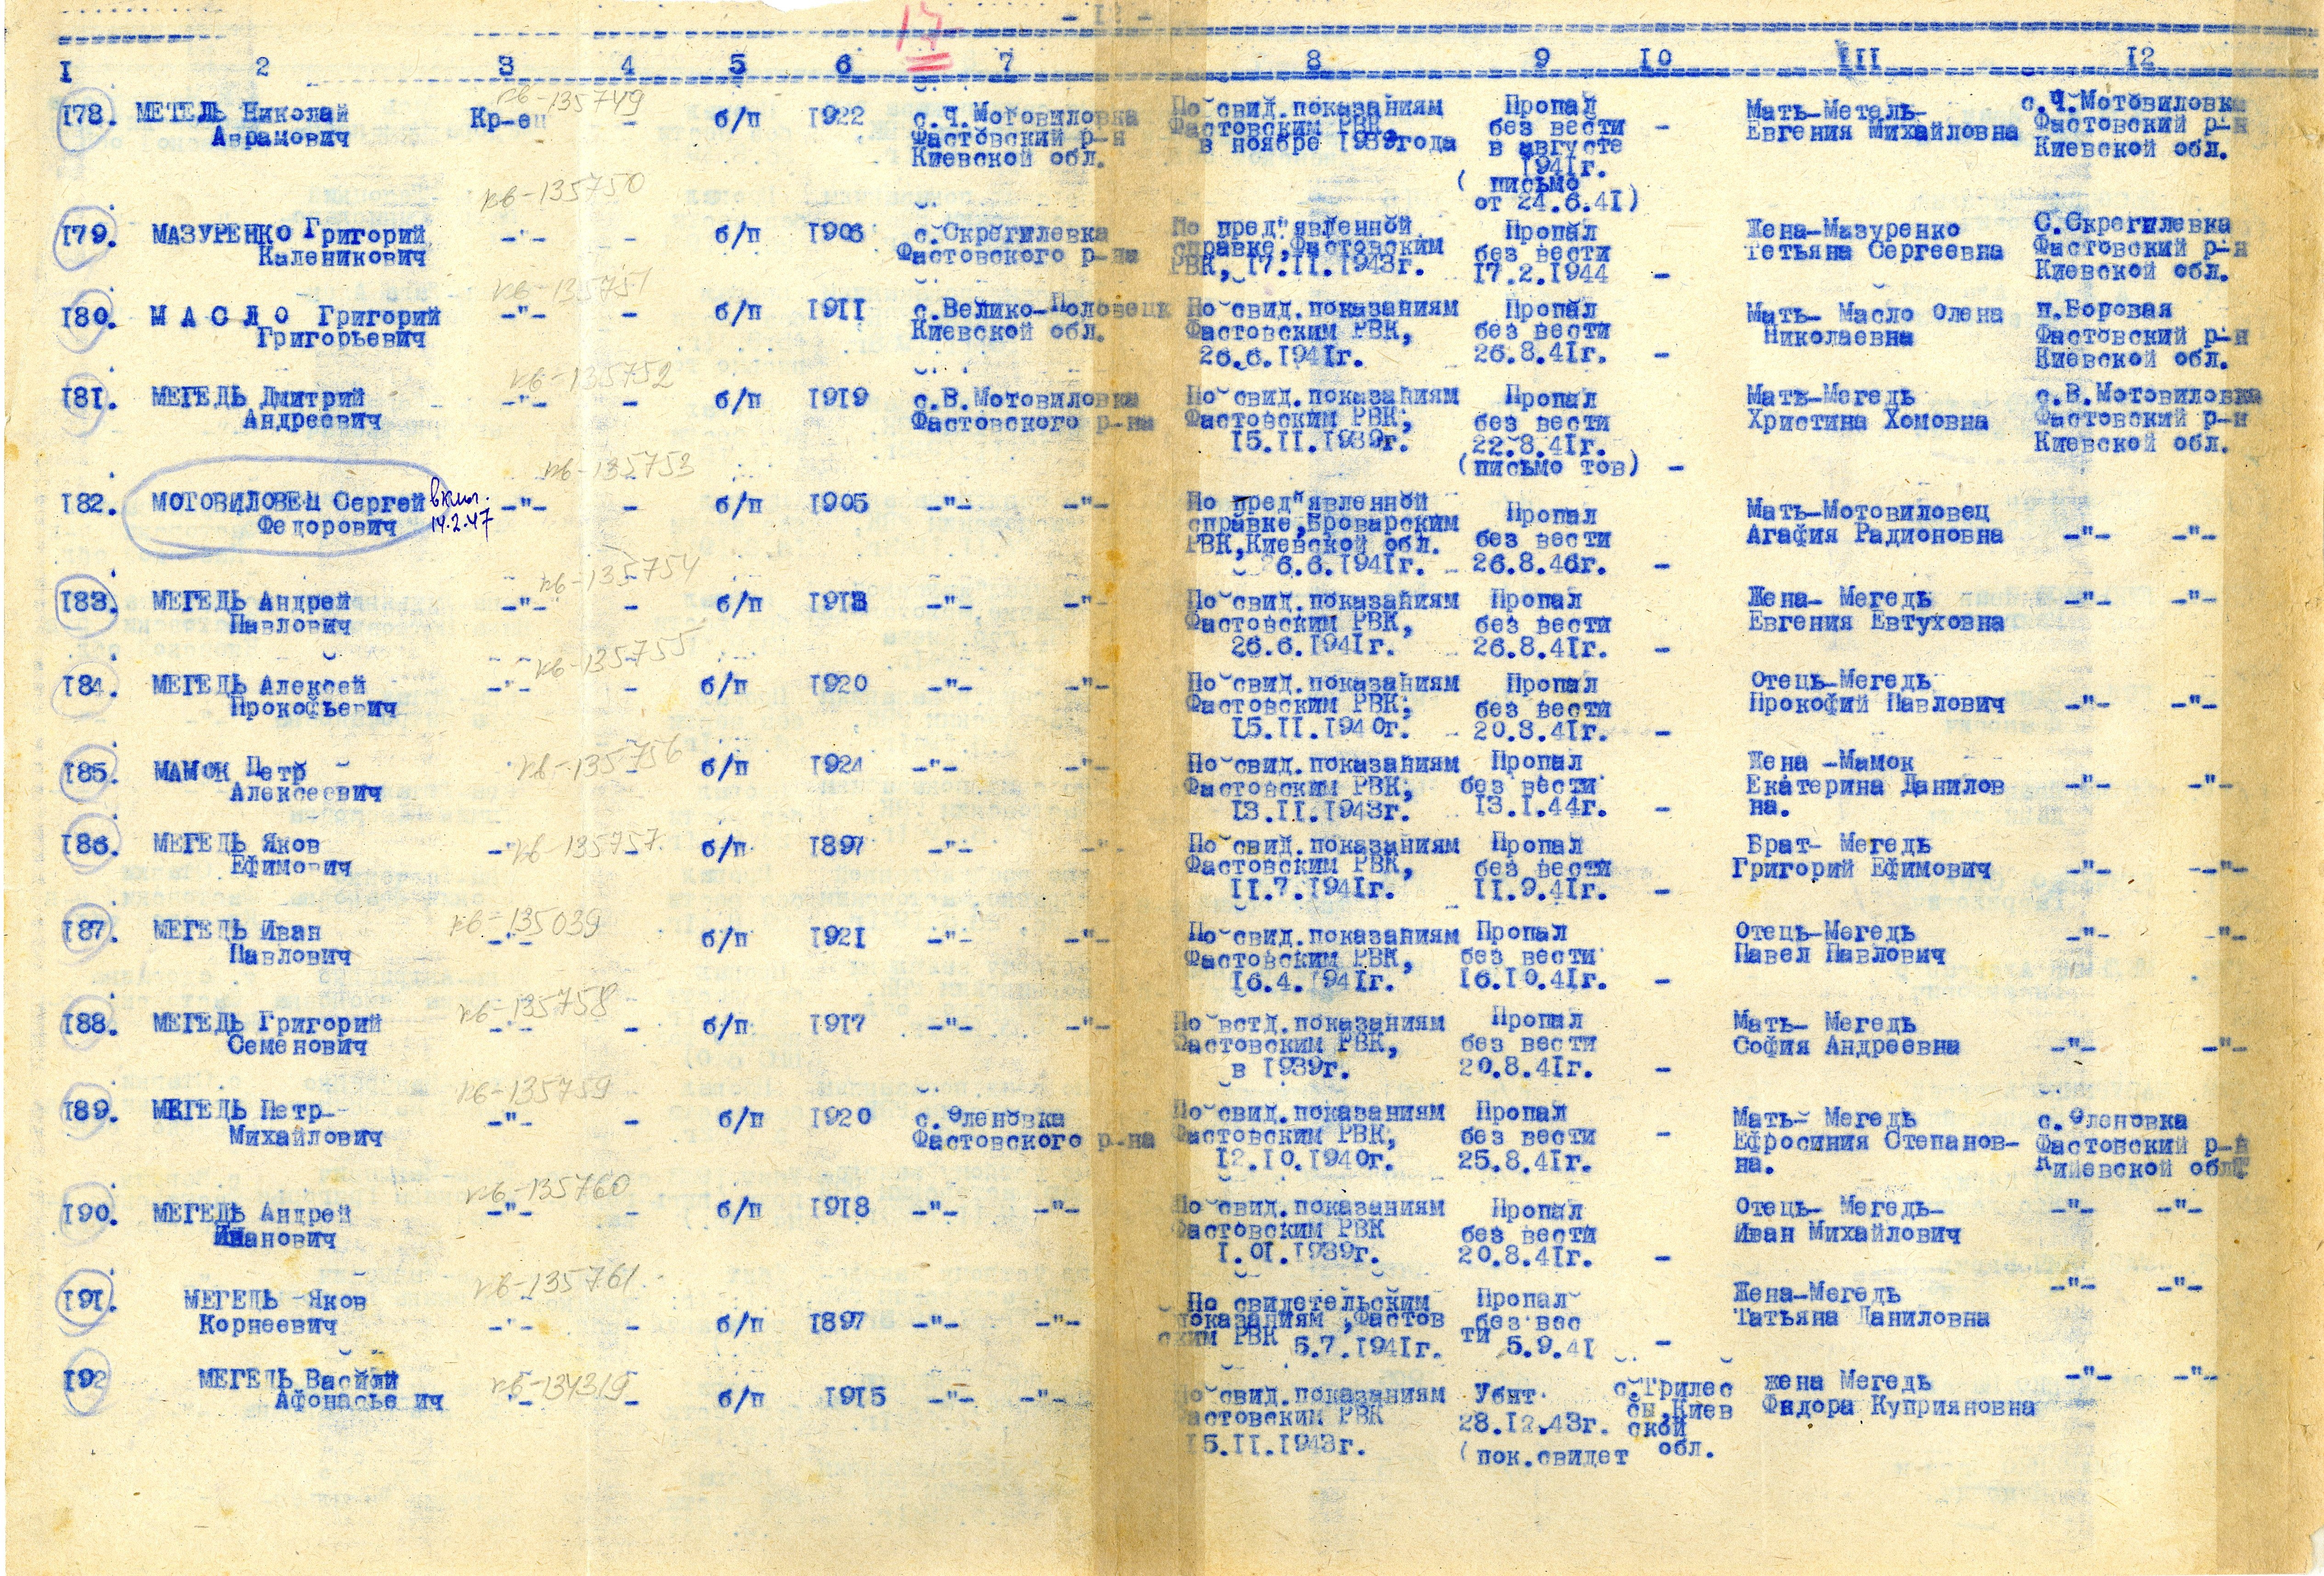 17
I 2 3 4 5 6 7 8 9 10 III 12
кв-135749
178. МЕТЕЛЬ Николай Аврамович Кр-ец - б/п 1922 с.Ч.Мотовиловка Фастовский р-н Киевской обл. По свид.показаниям Фастовским РВК, в ноябре 1939года Пропал без вести в августе 1941г. ( письмо от 24.6.41) - Мать-Метель- Евгения Михайловна с.Ч.Мотовиловка Фастовский р-н Киевской обл.
кв-135750
179. МАЗУРЕНКО Григорий Каленикович -"- - б/п 1906 с.Скрегилевка Фастовского р-на По пред"явленной справке,Фастовским РВК, 17.II.1943г. Пропал без вести 17.2.1944 - Жена-Мазуренко Тетьяна Сергеевна С.Скрегилевка Фастовский р-н Киевской обл.
кв-135751
180. М А С Л О Григорий Григорьевич -"- - б/п 1911 с.Велико-Половецк Киевской обл. По свид.показаниям Фастовским РВК, 26.6.1941г. Пропал без вести 26.8.41г. - Мать- Масло Олена Николаевна п.Боровая Фастовский р-н Киевской обл.
кв-135752
181. МЕГЕДЬ Дмитрий Андреевич -"- - б/п 1919 с.В.Мотовиловка Фастовского р-на По свид.показаниям Фастовским РВК, 15.II.1939г. Пропал без вести 22.8.41г. (письмо тов) - Мать-Мегедь Христина Хомовна с.В.Мотовиловка Фастовский р-н Киевской обл.
кв-135753
182. МОТОВИЛОВЕЦ Сергей Федорович 14.2.47 -"- - б/п 1905 -"- -"- По пред"явленной справке,Броварским РВК,Киевской обл. 26.6.1941г. Пропал без вести 26.8.46г. - Мать-Мотовиловец Агафия Радионовна -"- -"-
кв-135754
183. МЕГЕДЬ Андрей Павлович -"- - б/п 1913 -"- -"- По свид.показаниям Фастовским РВК, 26.6.1941г. Пропал без вести 26.8.41г. - Жена- Мегедь Евгения Евтуховна -"- -"-
кв-135755
184. МЕГЕДЬ Алексей Прокофьевич -"- - б/п 1920 -"- -"- По свид.показаниям Фастовским РВК, 15.II.1940г. Пропал без вести 20.8.41г. - Отець-Мегедь Прокофий Павлович -"- -"-
кв-135756
185. МАМОК Петр Алексеевич - б/п 1924 -"- -"- По свид.показаниям Фастовским РВК, 13.II.1943г. Пропал без вести 13.I.44г. - Жена -Мамок Екатерина Данилов на. -"- -"-
кв-135757
186. МЕГЕДЬ Яков Ефимович -"- - б/п 1897 -"- -"- По свид.показаниям Фастовским РВК, 11.7.1941г. Пропал без вести 11.9.41г. - Брат- Мегедь Григорий Ефимович -"- -"-
кв-135039
187. МЕГЕДЬ Иван Павлович -"- б/п 1921 -"- -"- По свид.показаниям Фастовским РВК, 16.4.1941г. Пропал без вести 16.10.41г. - Отець-Мегедь Павел Павлович -"- -"-
кв-135758
188. МЕГЕДЬ Григорий Семенович -"- - б/п 1917 -"- -"- По встд.показаниям Фастовским РВК, в 1939г. Пропал без вести 20.8.41г. - Мать- Мегедь София Андреевна -"- -"-
кв-135759
189. МЕГЕДЬ Петр Михайлович -"- - б/п 1920 с.Оленовка Фастовского р-на По свид.показаниям Фастовским РВК, 12.10.1940г. Пропал без вести 25.8.41г. - Мать- Мегедь Ефросиния Степанов- на. с.Оленовка Фастовский р-н Киевской обл
кв-135760
190. МЕГЕДЬ Андрей Иванович -"- - б/п 1918 -"- -"- По свид.показаниям Фастовским РВК 1.01.1939г. Пропал без вести 20.8.41г. - Отець- Мегедь- Иван Михайлович -"- -"-
кв-135761
191. МЕГЕДЬ Яков Корнеевич -"- - б/п 1897 -"- -"- По свидетельским показаниям ,Фастов ским РВК 5.7.1941г. Пропал без вес ти 5.9.41 - Жена-Мегедь Татьяна Даниловна -"- -"-
кв-134319
192 МЕГЕДЬ Васили Афонасье ич -"- - б/п 1915 -"- -"- По свид.показаниям Фастовским РВК 15.II.1943г. Убит 28.12.43г. (пок.свидет с.Трилес сы,Киев ской обл. жена Мегедь Федора Куприяновна -"- -"-